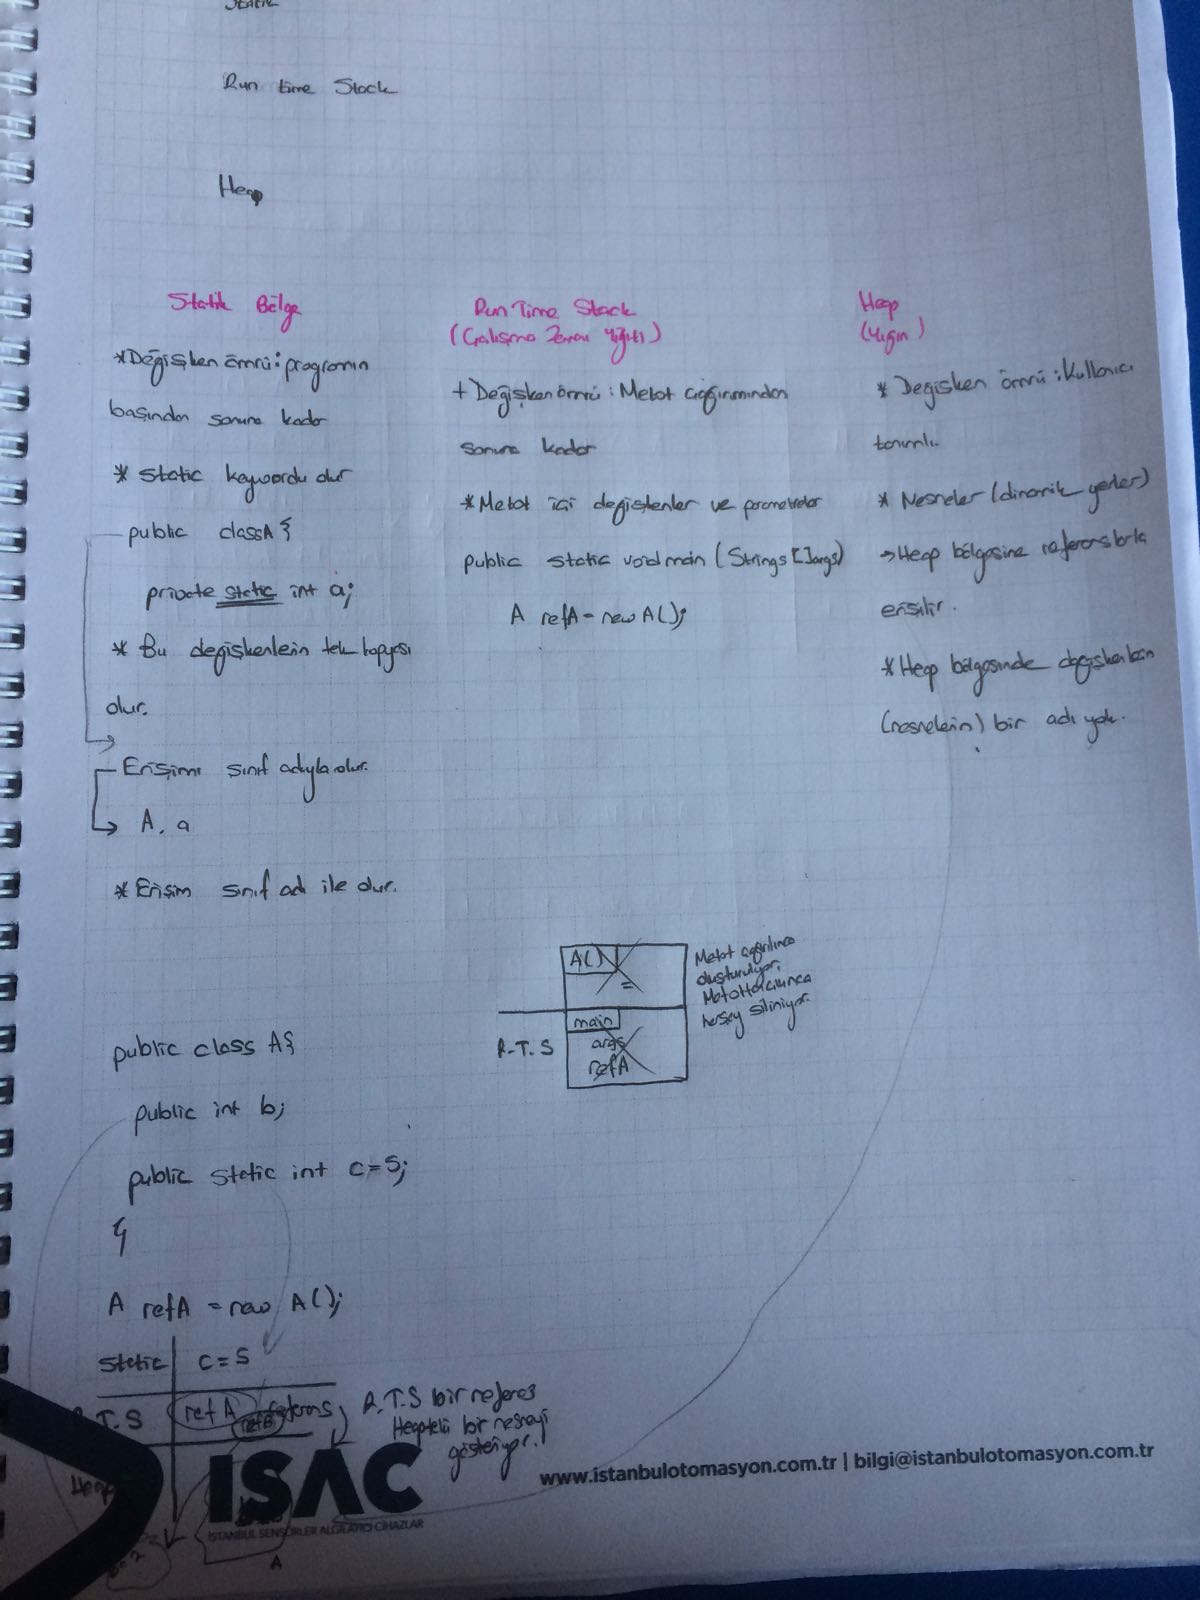 Static
Run time Stack
Heap
Statik Bölge
*Değişken ömrü: programın
başından sonuna kadar
* Static keywordu olur
public classA{
private static int a;
* Bu değişkenlein tek kopyası
olur.
Erişimi sınıf adıyla olur.
A. a
*Erişim sınıf adı ile olur.
Run Time Stack
(Çalışma Zamanı Yığıtı)
+ Değişken ömrü: Metot çağırımından
sonuna kadar
*Metot içi değişkenler ve parametreler
public static void main (Strings []args)
A refA = new A();
Heap
(Yığın)
* Değişken ömrü: Kullanıcı
tanımlı.
* Nesneler (dinamik yerler)
→Heap bölgesine referanslarla
erişilir.
*Heap bölgesinde değişkenlein
(nesnelein) bir adı yok.
A()
=
main
args
refA
R.T.S
Metot çağrılınca
oluşturuluyor.
Metottan çıkınca
herşey siliniyor.
public class A{
public int b;
public static int c=5;
}
A refA = new A();
static c=5
.T.S refA refB referans
R.T.S bir referas
Heapteki bir nesneyi
gösteriyor.
Heap
A
ISAC
ISTANBUL SENSÖRLER ALGILAYICI CİHAZLAR
www.istanbulotomasyon.com.tr | bilgi@istanbulotomasyon.com.tr